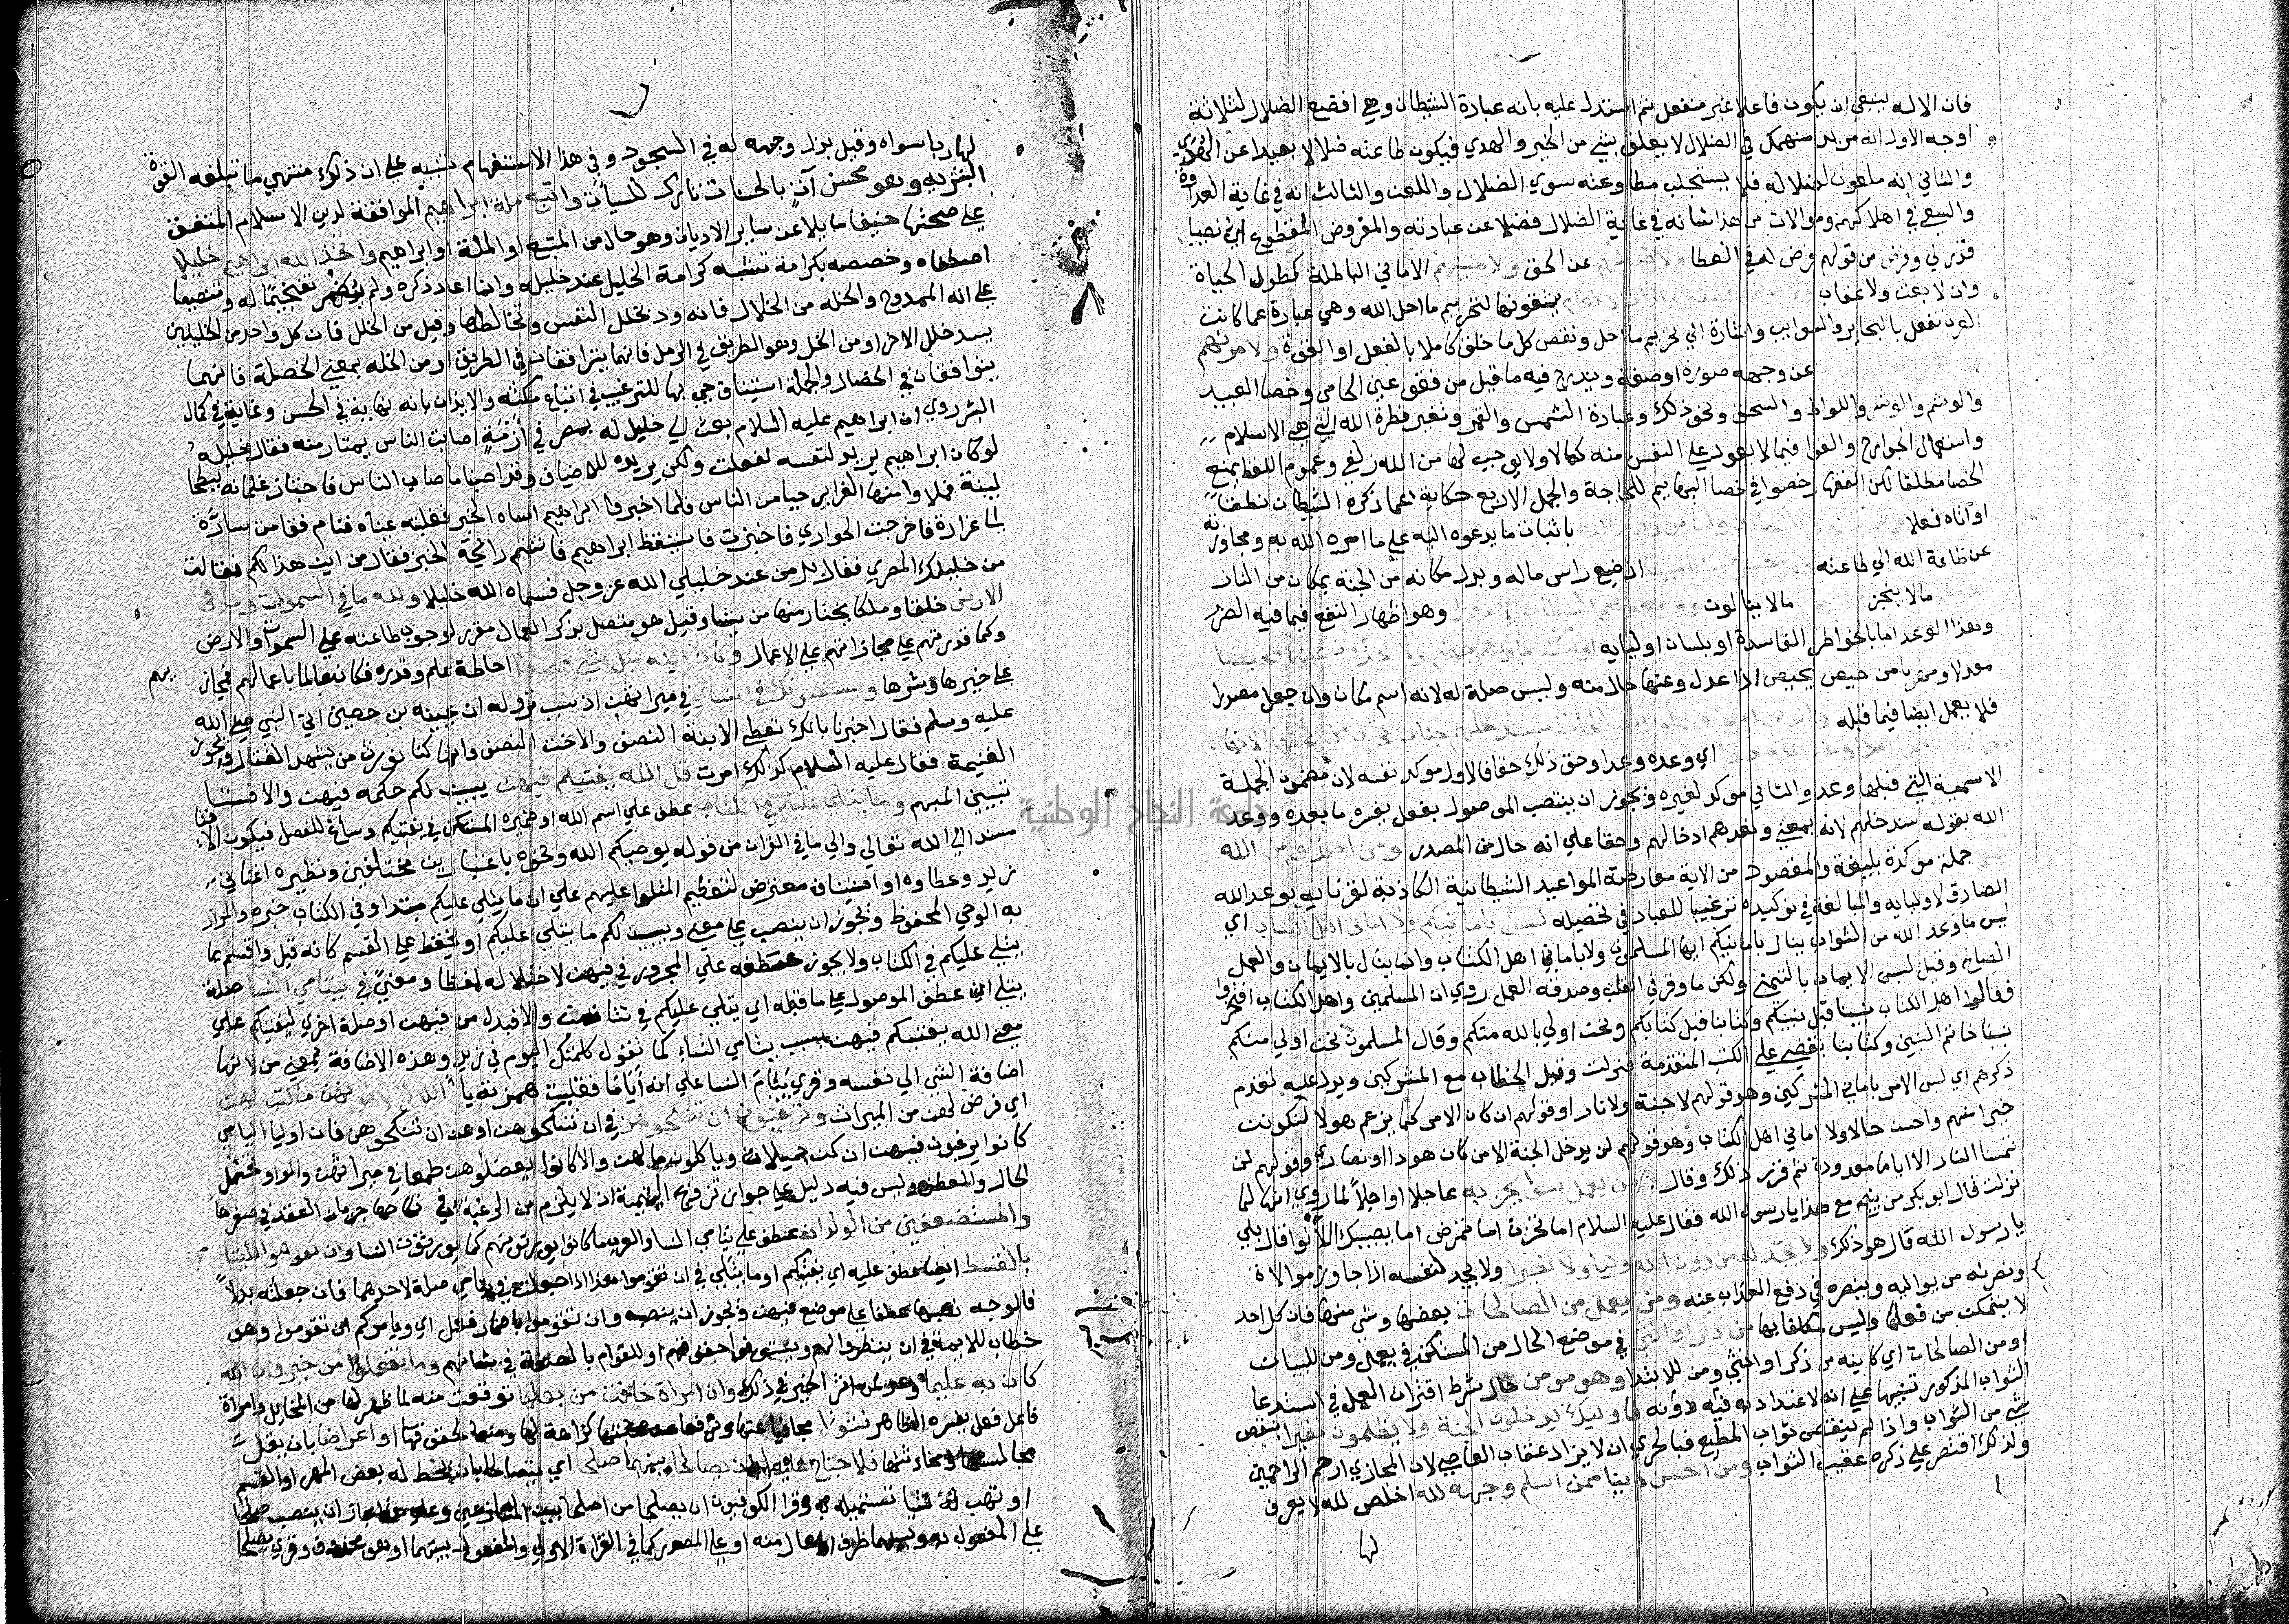 فان الاله ينبغي ان يكون فاعلا غير منفعل ثم استدل عليه بانه عبادة الشيطان وهي افضع الضلال لثلاثة
اوجه الاول انه مريد منهمك في الضلال لا يعلق بشي من الخير والهدي فيكون طاعته ضلالا بعيدا عن الهدي
والثاني انه ملعون لضلاله فلا يستجلب مطاوعته سوي الضلال واللعن والثالث انه في غاية العداوة
والسعي في اهلاكهم وموالات من هذا شانه في غاية الضلال فضلا عن عبادته والمفروض المقطوع اي نصيبا
قدر لي وفرض من قولهم فرض له في العطا ولاضلنهم عن الحق ولامنينهم الاماني الباطلة كطول الحياة
وان لا بعث ولا عقاب يشقونها لتحريم ما احل الله وهي عبارة عما كانت
العرب تفعل بالبحاير والسوايب واشارة الي تحريم ما احل ونقص كل ما خلق كاملا بالفعل او القوة ولامرنهم
عن وجهه صورة او صفة ويندرج فيه ما قيل من فقو عين الحامي وخصا العبيد
والوشم والوشر واللواط والسحق ونحو ذلك وعبادة الشمس والقمر وتغير فطرة الله التي هي الاسلام
واستعمال الجوارح والقوا فيما لا يعود علي النفس منه كمالا ولا يوجب لها من الله زلفي وعموم اللفظ يمنع
الخصا مطلقا لكن الفقها رخصوا في خصا البهايم للحاجة والجمل الاربع حكاية عما ذكره الشيطان نطقا
او اتاه فعلا باثبات ما يدعوه اليه علي ما امره الله به ومجاوزته
عن طاعة الله الي طاعته اذ ضيع راس ماله وبدل مكانه من الجنة بمكان من النار
مالا ينجز مالا ينالون وهو اظهار النفع فيما فيه الضرر
وهذا الوعد اما بالخواطر الفاسدة او بلسان اوليايه اولئك ماواهم جهنم ولا يجدون عنها محيصا
معدلا ومهربا من حيص يحيص اذا عدل وعنها حال منه وليس صلة له لانه اسم مكان وان جعل مصدرا
فلا يعمل ايضا فيما قبله سندخلهم جنات تجري من تحتها الانهار
اي وعده وعدا وحق ذلك حقا فالاول موكد لنفسه لان مضمون الجملة
الاسمية التي قبلها وعد والثاني موكد لغيره ويجوز ان ينتصب الموصول بفعل يفسره ما بعده ووعد
الله بقوله سندخلهم لانه بمعني وعدهم ادخالهم وحقا علي انه حال من المصدر ومن اصدق من الله
قيلا جملة موكدة بليغة والمقصود من الاية معارضة المواعيد الشيطانية الكاذبة لقرنايه بوعد الله
الصادق لاوليايه والمبالغة في توكيده ترغيبا للعباد في تحصيله ليس بامانيكم ولا اماني اهل الكتاب اي
ليس ما وعد الله من الثواب ينال بامانيكم ايها المسلمون ولا باماني اهل الكتاب وانما ينال بالايمان والعمل
الصالح وقيل ليس الايمان بالتمني ولكن ما وقر في القلب وصدقه العمل روي ان المسلمين واهل الكتاب افتخروا
فقالوا اهل الكتاب نبينا قبل نبيكم وكتابنا قبل كتابكم ونحن اولي بالله منكم وقال المسلمون نحن اولي منكم
نبينا خاتم النبيين وكتابنا يقضي علي الكتب المتقدمة فنزلت وقيل الخطاب مع المشركين ويدل عليه تقدم
ذكرهم اي ليس الامر باماني المشركين وهو قولهم لا جنة ولا نار او قولهم ان كان الامر كما يزعم هولا لنكونن
خيرا منهم واحسن حالا ولا اماني اهل الكتاب وهو قولهم لن يدخل الجنة الا من كان هودا او نصاري وقولهم لن
تمسنا النار الا اياما معدودة ثم قرر ذلك وقال من يعمل سوا يجز به عاجلا او اجلا لما روي انها لما
نزلت قال ابو بكر من ينجو مع هذا يا رسول الله فقال عليه السلام اما تحزن اما تمرض اما يصيبك اللاوا قال بلي
يا رسول الله قال هو ذلك ولا يجد له من دون الله وليا ولا نصيرا ولا يجد لنفسه اذا جاوز موالاة
ونصرته من يواليه وينصره في دفع العذاب عنه ومن يعمل من الصالحات بعضها وشي منها فان كل احد
لا يتمكن من فعلها وليس مكلفا بها من ذكر او انثي في موضع الحال من المستكن في يعمل ومن للبيان
او من الصالحات اي كاينه من ذكر او انثي ومن للابتدا وهو مومن حال شرط اقتران العمل في استدعا
الثواب المذكور تنبيها علي انه لا اعتداد به فيه دونه فاوليك يدخلون الجنة ولا يظلمون نقيرا بنقص
شي من الثواب واذا لم ينقص ثواب المطيع فبالحري ان لا يزاد عقاب العاصي لان المجازي ارحم الراحمين
ولذلك اقتصر علي ذكره عقيب الثواب ومن احسن دينا ممن اسلم وجهه لله اخلص لله لا يعرف
لها
لها ربا سواه وقيل بذل وجهه له في السجود وفي هذا الاستفهام تنبيه علي ان ذلك منتهي ما تبلغه القوة
البشريه وهو محسن آت بالحسنات تارك للسيأت واتبع ملة ابراهيم الموافقة لدين الاسلام المتفق
علي صحتها حنيفا مايلا عن ساير الاديان وهو حال من المتبع او الملة او ابراهيم واتخذ الله ابراهيم خليلا
اصطفاه وخصصه بكرامة تشبه كرامة الخليل عند خليله وانما اعاد ذكره ولم يضمر تفخيما له وتنصيصا
علي انه الممدوح والخله من الخلال فانه ود تخلل النفس وتخالطها وقيل من الخلل فان كل واحد من الخليلين
يسد خلل الاخر او من الخل وهو الطريق في الرمل فانهما يترافقان في الطريق او من الخله بمعني الخصلة فانهما
يتوافقان في الخصال والجملة استيناف جي بها للترغيب في اتباع ملته والايذان بانه نهاية في الحسن وغاية في كمال
البشر روي ان ابراهيم عليه السلام بعث الي خليل له بمصر في أزمة اصابت الناس يمتار منه فقال خليله
لو كان ابراهيم يريد لنفسه لفعلت ولكن يريده للاضياف وقد اصبنا ما اصاب الناس فاجتاز غلمانه ببطحا
لينة فملاوا منها الغراير حيا من الناس فلما اخبروا ابراهيم اساه الخبر فغلبته عيناه فنام فقامت سارة
الي غرارة فاخرجت الحواري فاخبزت فاستيقظ ابراهيم فاشتم رائحة الخبز فقال من اين هذا لكم فقالت
من خليلك المصري فقال بل من عند خليلي الله عز وجل فسماه الله خليلا ولله ما في السموات وما في
الارض خلقا وملكا يختار منها من يشا وقيل هو متصل بذكر العمال مقرر لوجوب طاعته علي السموات والارض
وكمال قدرته علي مجازاتهم علي الاعمال وكان الله بكل شي محيطا احاطة علم وقدرة فكان عالما باعمالهم فيجازيهم
علي خيرها وشرها ويستفتونك في النساي في ميراثهن اذ سبب نزوله ان عيينه بن حصين اتي النبي صلي الله
عليه وسلم فقال اخبرنا بانك تعطي الابنة النصف والاخت النصف وانما كنا نورث من يشهد القتال ويحوز
الغنيمة فقال عليه السلام كذلك امرت قل الله يفتيكم فيهن يبين لكم حكمه فيهن والافتا
تبيين المبهم وما يتلي عليكم في الكتاب عطف علي اسم الله او ضميره المستكن في يفتيكم وساغ للفصل فيكون الافتا
مسندا الي الله تعالي والي ما في القران من قوله يوصيكم الله ونحوه باعتبارين مختلفين ونظيره اغناني
زيد وعطاوه او استيناف معترض لتعظيم المتلوا عليهم علي ان ما يتلي عليكم مبتدا وفي الكتاب خبره والمراد
به الوحي المحفوظ ويجوز ان ينصب علي معني ويبين لكم ما يتلي عليكم او يخفض علي القسم كانه قيل واقسم بما
يتلي عليكم في الكتاب ولا يجوز عطفه علي المجرور في فيهن لاختلاله لفظا ومعني في يتامي النسا صلة
يتلي ان عطف الموصول علي ما قبله اي يتلي عليكم في شانهن والا فبدل من فيهن او صلة اخري ليفتيكم علي
معني الله يفتيكم فيهن بسبب يتامي النساء كما تقول كلمتك اليوم في زيد وهذه الاضافة بمعني من لانها
اضافة الشي الي نفسه وقري ييامي النسا علي انه أيامي فقلبت همزته يا اللاتي لا تؤتونهن ما كتب لهن
اي فرض لهن من الميراث وترغبون ان تنكحوهن في ان تنكحوهن او عن ان تنكحوهن فان اوليا اليتامي
كانوا يرغبون فيهن ان كن جميلات وياكلون مالهن والا كانوا يعضلوهن طمعا في ميراثهن والواو تحتمل
الحال والعطف وليس فيه دليل علي جواز تزويج اليتيمة اذ لا يلزم من الرغبة في نكاحها جريان العقد في صغرها
والمستضعفين من الولدان عطف علي يتامي النسا والعرب ما كانوا يورثونهم كما لا يورثون النسا وان تقوموا لليتامي
بالقسط ايضا عطف عليه اي يفتيكم او ما يتلي في ان تقوموا هذا اذا جعلت في يتامي صلة لاحدهما فان جعلته بدلا
فالوجه نصبها عطفا علي موضع فيهن ويجوز ان ينصب وان تقوموا باضمار فعل اي ويامركم ان تقوموا وهو
خطاب للايمة في ان ينظروا لهم ويستوفوا حقوقهم او للقوام بالنصفة في شانهم وما تفعلوا من خير فان الله
كان به عليما وعد لمن اثر الخير في ذلك وان امراة خافت من بعلها توقعت منه لما ظهر لها من المخايل وامراة
فاعل فعل يفسره الظاهر نشوزا تجافيا عنها وترفعا عن صحبتها كراهة لها ومنعا لحقوقها او اعراضا بان يقل
مجالستها ومحادثتها فلا جناح عليهما ان يصالحا بينهما صلحا اي يتصالحا بان تحط له بعض المهر او القسم
او تهب له شيا تستميله به وقرا الكوفيون ان يصلحا من اصلح بين المتنازعين وعلي هذا جاز ان ينتصب صلحا
علي المفعول به وبينهما ظرف او حال منه او علي المصدر كما في القراة الاولي والمفعول بينهما او هو محذوف وقري يصلحا
جامعة النجاح الوطنية